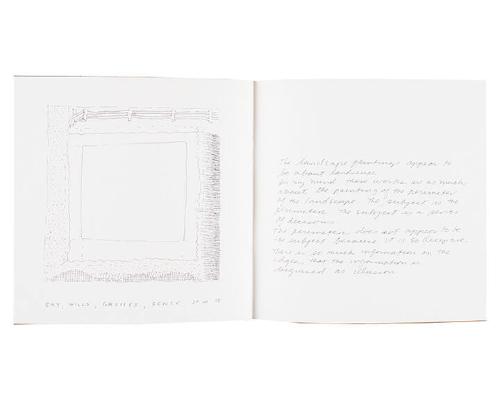 SKY, HILLS, GRASSES, FENCE
The landscape paintings appear to
be about landscape.
In my mind these works are as much
about the painting of the perimeter
of the landscape. The subject is the
perimeter. The subject is a series
of decisions.
The perimeter does not appear to be
the subject because it is so deceptive.
There is so much information on the
edges that the information is
disguised as illusion.